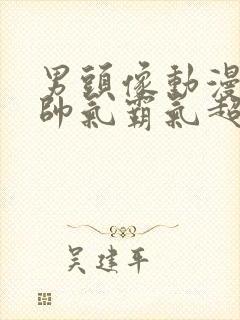 男頭像動漫
帥氣霸氣超
吴建平